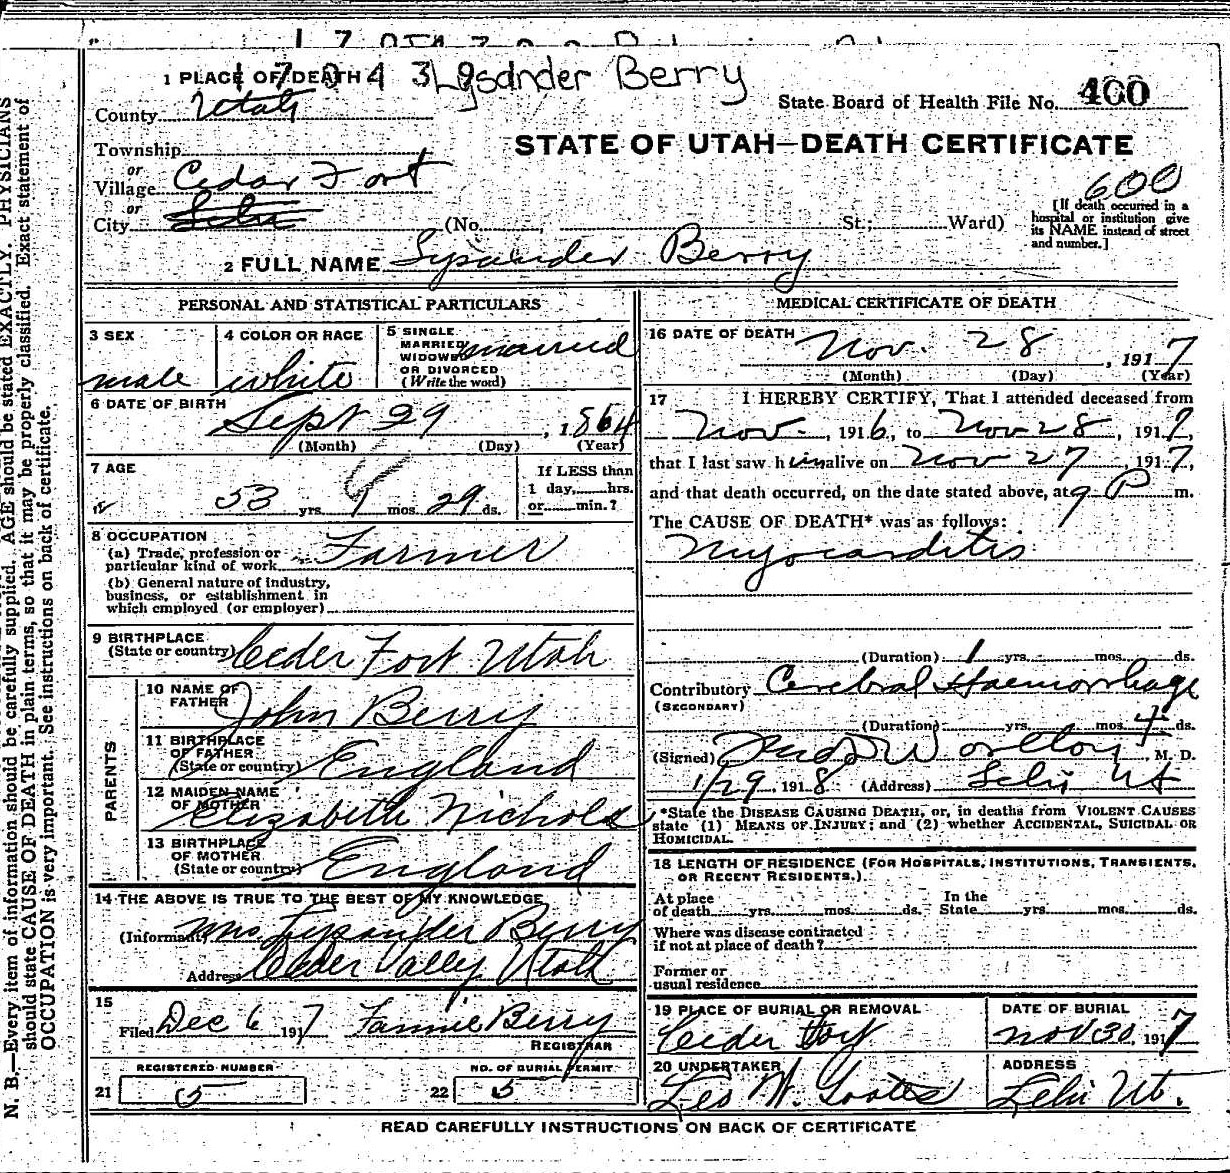 1 PLACE OF DEATH 1 7 0 4 3 9 Lysander Berry
County Utah
State Board of Health File No. 400
Township
STATE OF UTAH—DEATH CERTIFICATE
or
Village Cedar Fort
600
or
City Lehi (No. , St.; Ward)
[If death occurred in a hospital or institution give its NAME instead of street and number.]
2 FULL NAME Lysander Berry
PERSONAL AND STATISTICAL PARTICULARS
3 SEX
male
4 COLOR OR RACE
white
5 SINGLE
MARRIED married
WIDOWED
OR DIVORCED
(Write the word)
6 DATE OF BIRTH
Sept 29, 1864
(Month) (Day) (Year)
7 AGE
53 yrs. mos. 29 ds.
If LESS than
1 day, hrs.
or min.?
8 OCCUPATION
(a) Trade, profession or
particular kind of work Farmer
(b) General nature of industry,
business, or establishment in
which employed (or employer)
9 BIRTHPLACE
(State or country) Ceder Fort Utah
PARENTS
10 NAME OF
FATHER John Berry
11 BIRTHPLACE
OF FATHER
(State or country) England
12 MAIDEN NAME
OF MOTHER Elizabeth Nichols
13 BIRTHPLACE
OF MOTHER
(State or country) England
14 THE ABOVE IS TRUE TO THE BEST OF MY KNOWLEDGE
(Informant) Mrs Lysander Berry
Address Ceder Valley Utah
15
Filed Dec 6 1917 Fannie Berry
REGISTRAR
REGISTERED NUMBER
21 5
NO. OF BURIAL PERMIT
22 5
MEDICAL CERTIFICATE OF DEATH
16 DATE OF DEATH
Nov. 28, 1917
(Month) (Day) (Year)
17 I HEREBY CERTIFY, That I attended deceased from
Nov. , 1916, to Nov 28, 1917,
that I last saw him alive on Nov 27 1917,
and that death occurred, on the date stated above, at 9 P m.
The CAUSE OF DEATH* was as follows:
Myocarditis
(Duration) 1 yrs. mos. ds.
Contributory Cerebral Haemorrhage
(SECONDARY)
(Duration) yrs. mos. 4 ds.
(Signed) Worlton, M. D.
1/29, 1918 (Address) Lehi Ut
*State the DISEASE CAUSING DEATH, or, in deaths from VIOLENT CAUSES
state (1) MEANS OF INJURY; and (2) whether ACCIDENTAL, SUICIDAL OR
HOMICIDAL.
18 LENGTH OF RESIDENCE (FOR HOSPITALS, INSTITUTIONS, TRANSIENTS,
OR RECENT RESIDENTS.)
At place
of death yrs. mos. ds.
In the
State yrs. mos. ds.
Where was disease contracted
if not at place of death?
Former or
usual residence
19 PLACE OF BURIAL OR REMOVAL
Ceder Fort
DATE OF BURIAL
Nov 30, 1917
20 UNDERTAKER
ADDRESS
Lehi Ut.
READ CAREFULLY INSTRUCTIONS ON BACK OF CERTIFICATE
N. B.—Every item of information should be carefully supplied. AGE should be stated EXACTLY. PHYSICIANS
should state CAUSE OF DEATH in plain terms, so that it may be properly classified. Exact statement of
OCCUPATION is very important. See instructions on back of certificate.